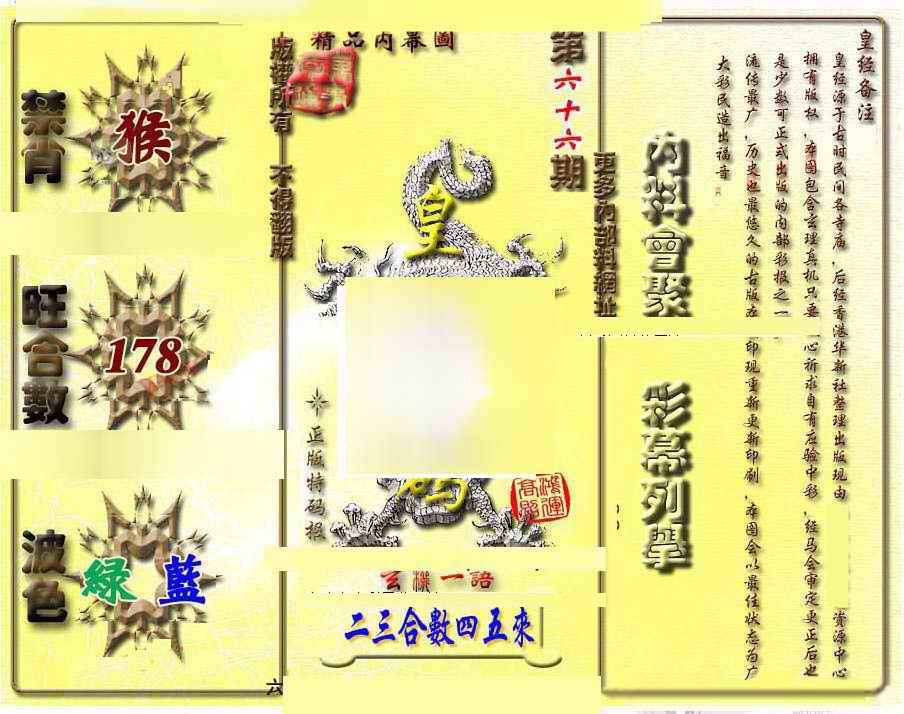 精品内幕圖
第六十六期
版權所有 不得翻版
更多內部料網址
禁肖
猴
旺合數
178
波色
綠 藍
皇
码
正版特码报
鴻運高照
玄機一語
二三合數四五來
六
內料會聚
彩幕列舉
皇经备注
皇经源于古时民间各寺庙，后经香港华新社整理出版现由
资源中心
拥有版权，本图包含玄理真机只要
心祈求自有应验中彩，经马会审定更正后也
是少数可正式出版的内部彩报之一
流传最广，历史也最悠久的古版在
印现重新更新印刷，本图会以最佳状态为广
大彩民造出福音